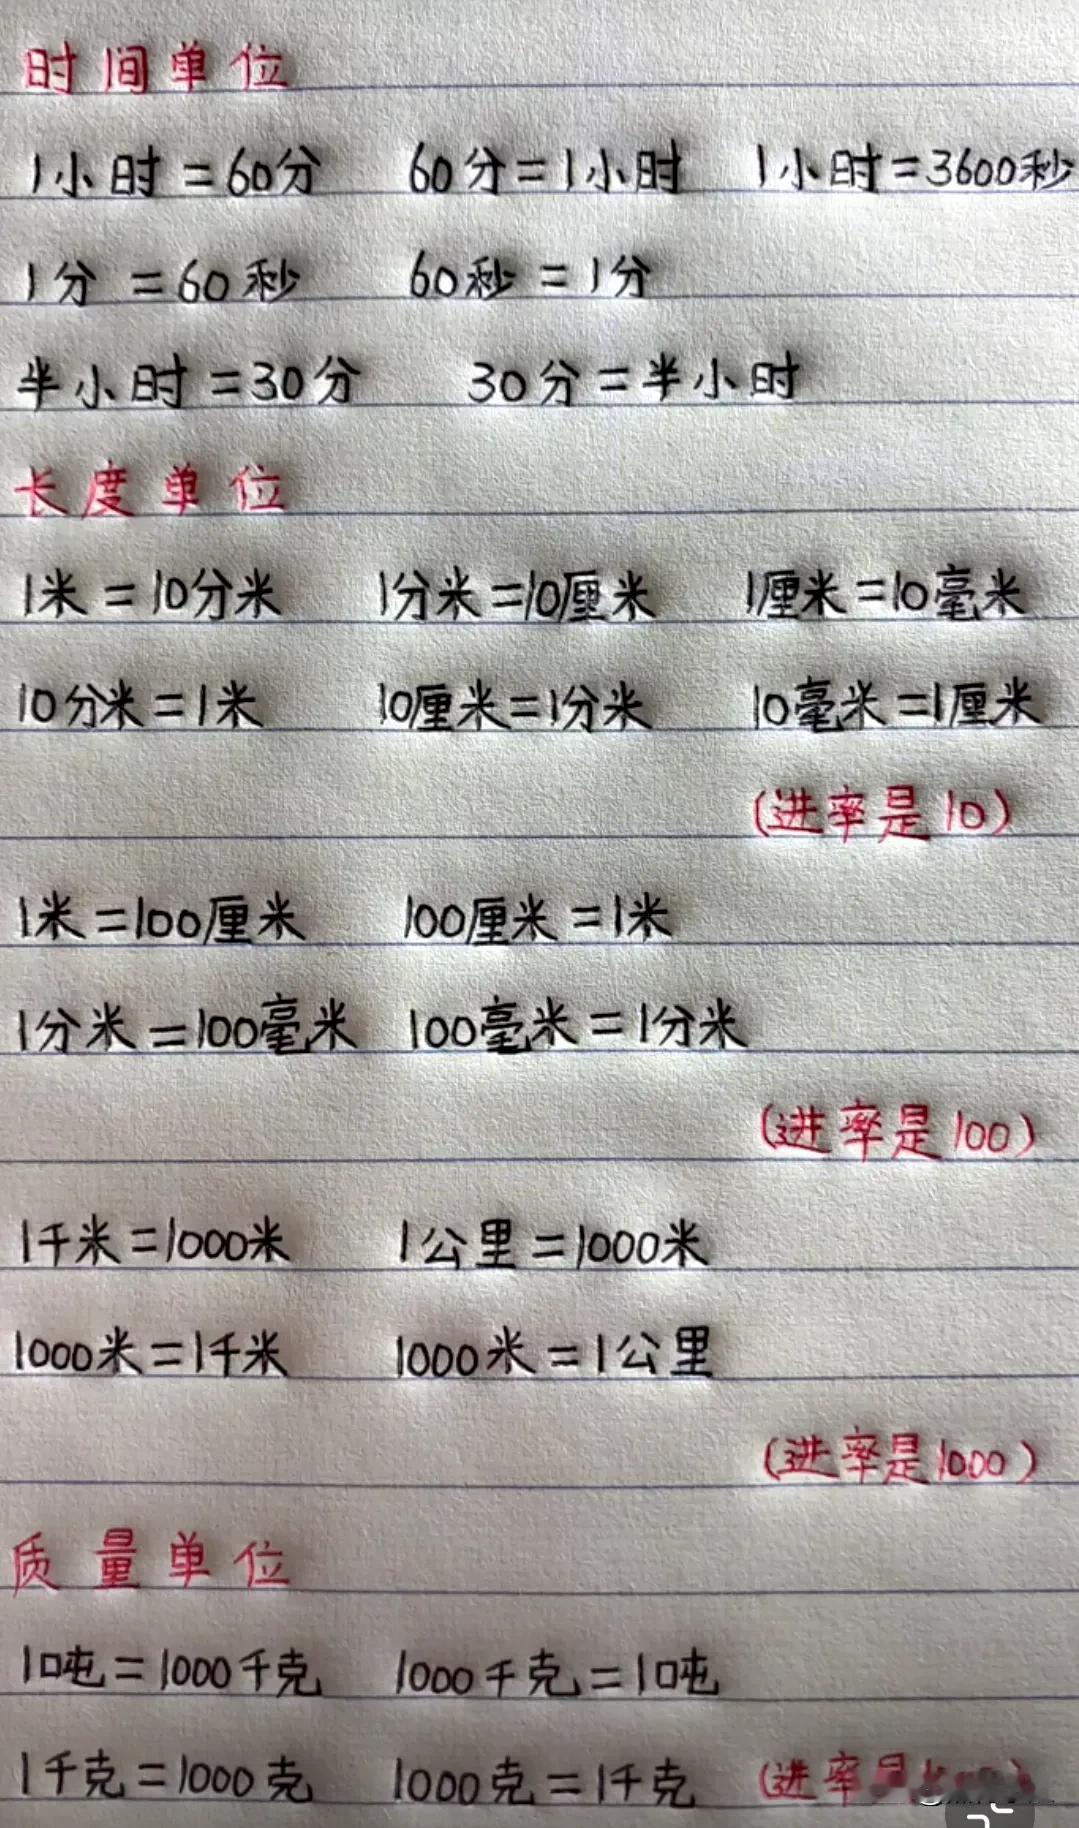 时间单位
1小时=60分 60分=1小时 1小时=3600秒
1分=60秒 60秒=1分
半小时=30分 30分=半小时
长度单位
1米=10分米 1分米=10厘米 1厘米=10毫米
10分米=1米 10厘米=1分米 10毫米=1厘米
(进率是10)
1米=100厘米 100厘米=1米
1分米=100毫米 100毫米=1分米
(进率是100)
1千米=1000米 1公里=1000米
1000米=1千米 1000米=1公里
(进率是1000)
质量单位
1吨=1000千克 1000千克=1吨
1千克=1000克 1000克=1千克 (进率是